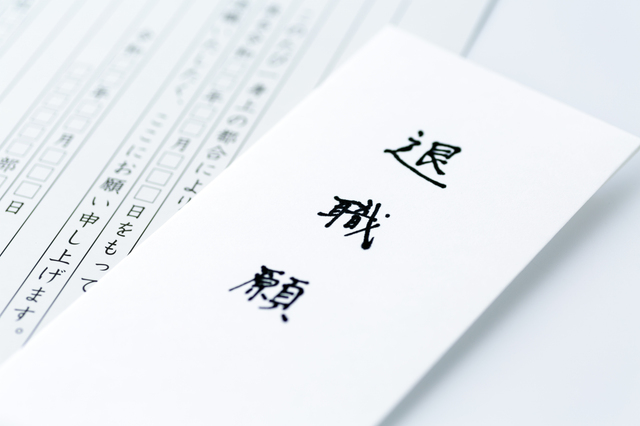 退職願
このたび一身上の都合により
年□□月□□日をもって
ここにお願い申し上げます。
年□□月□□日
部